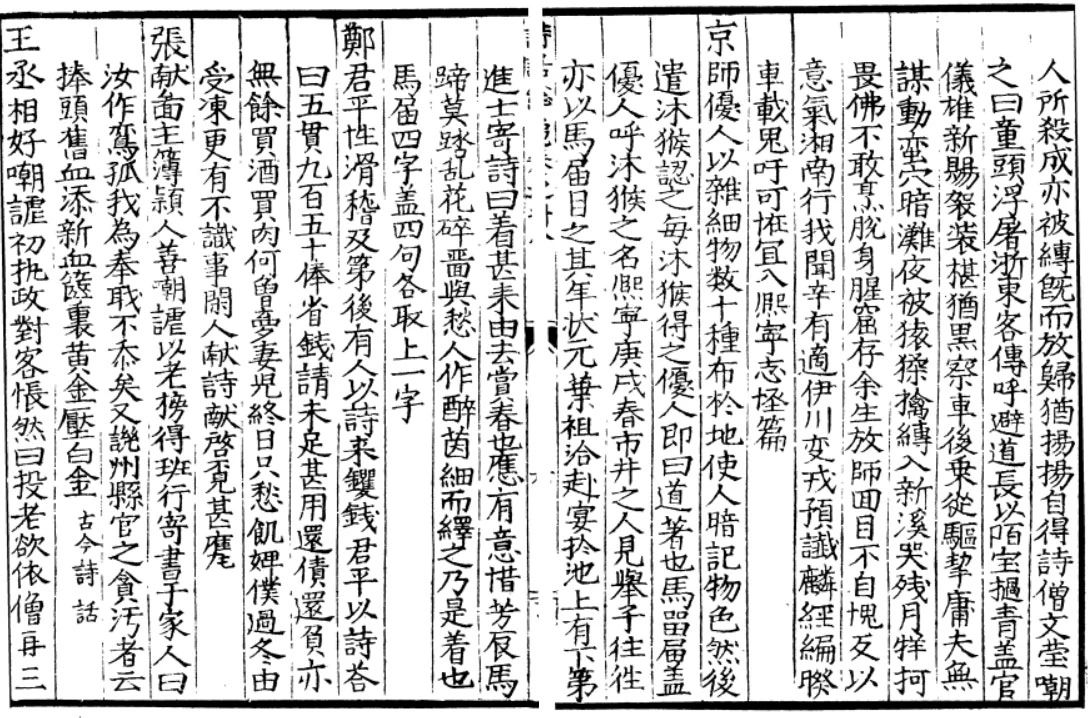 人所殺成亦被縛旣而放歸猶揚揚自得詩僧文瑩嘲
之曰童頭浮屠浙東客傳呼避道長以陌宝撾青盖官
儀雄新賜袈裟椹猶黒察車後乗從驅挈庸夫無
謀動蛮穴暗灘夜被猿猱擒縛入新溪哭残月牂柯
畏佛不敢烹脫身腥窟存余生放師囬目不自愧反以
意氣湘南行我聞辛有適伊川変戎預讖麟経編睽
車載鬼吁可恠冝入熈寧志怪篇
京師優人以雜細物数十種布於地使人暗記物色然後
遣沐猴認之每沐猴得之優人即曰道著也馬畱㞓盖
優人呼沐猴之名熈寧庚戌春市井之人見舉子往徃
亦以馬㞓目之其年状元葉祖洽赴宴扵池上有下第
進士寄詩曰着甚来由去賞春也應有意惜芳辰馬
蹄莫踏乱花碎畱與愁人作醉茵細而繹之乃是着也
馬畱四字盖四句各取上一字
鄭君平性滑稽及第後有人以詩来钁錢君平以詩荅
曰五貫九百五十俸省錢請来足甚用還債還負亦
無餘買酒買肉何曽憂妻児終日只愁飢婢僕過冬由
受凍更有不識事閑人献詩献啓覔甚麽
張献靣主簿潁人善嘲謔以老榜得班行寄書于家人曰
汝作鸞孤我為奉戝不忝矣又譏州縣官之貪汚者云
捧頭舊血添新血篋裏黄金壓白金 古今詩話
王丞相好嘲謔初執政對客悵然曰投老欲依僧再三